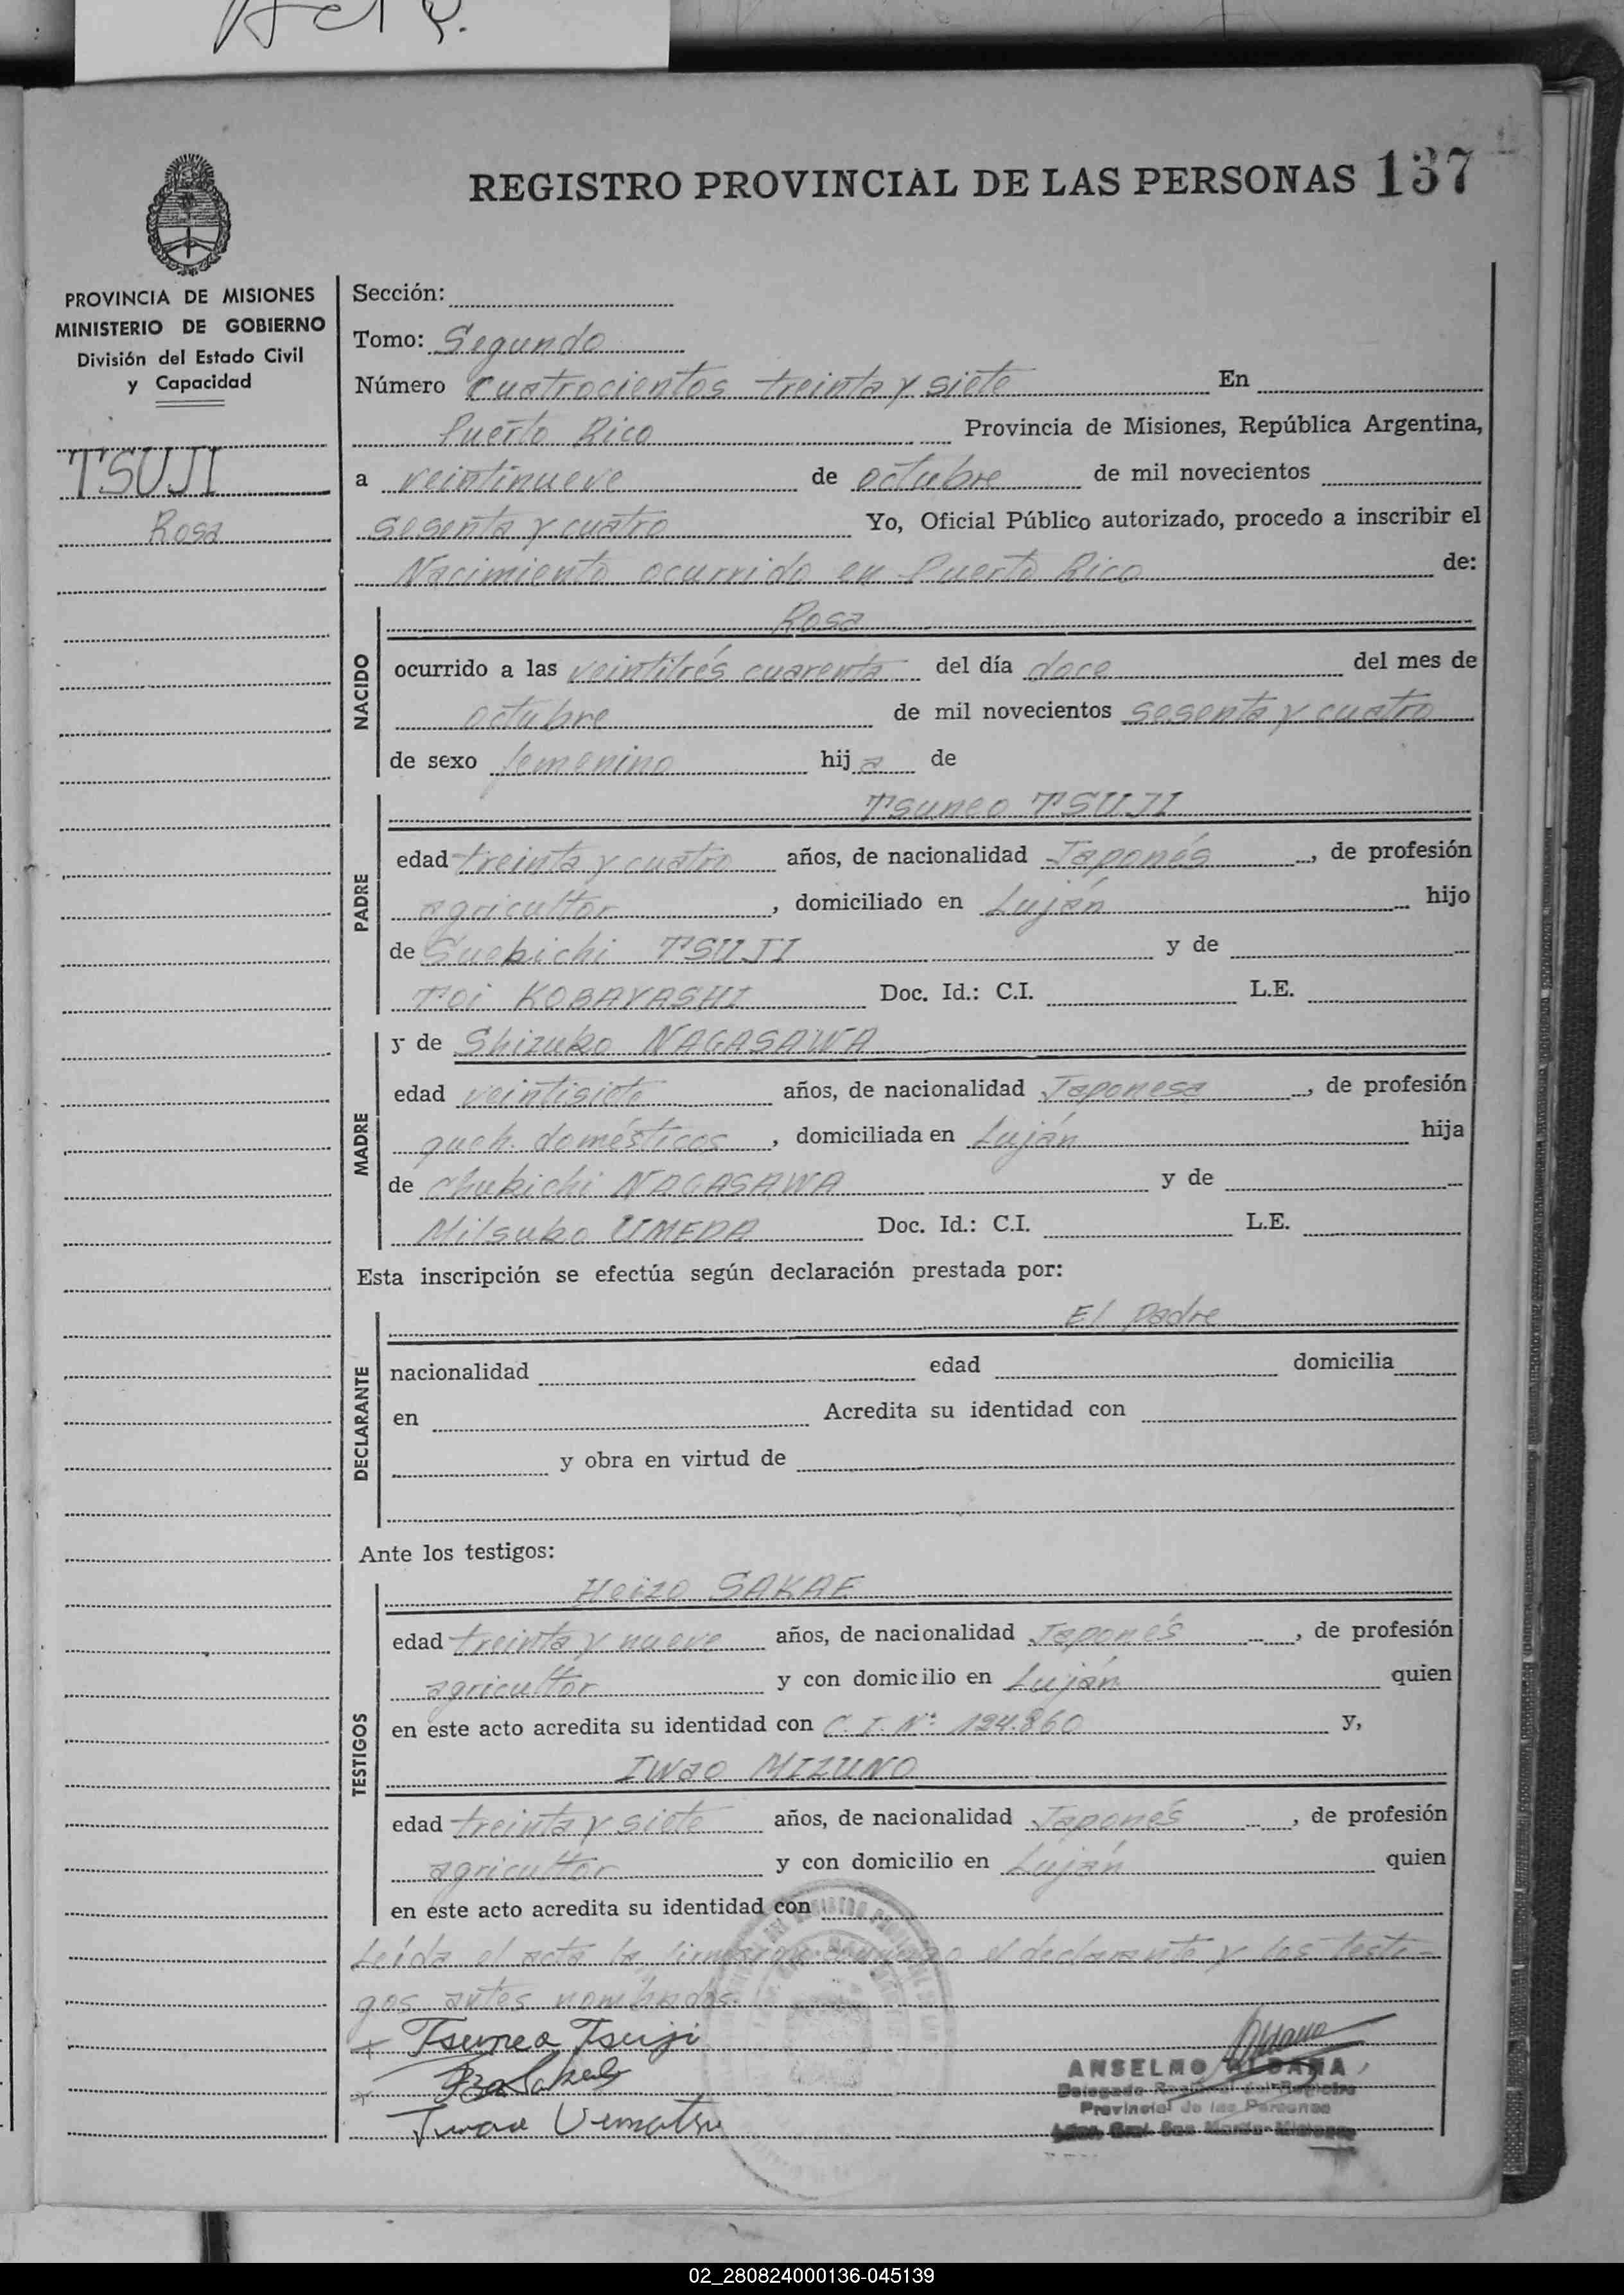 Acta.
REGISTRO PROVINCIAL DE LAS PERSONAS 137
PROVINCIA DE MISIONES
MINISTERIO DE GOBIERNO
División del Estado Civil
y Capacidad
TSUJI
Rosa
Sección:
Tomo: Segundo
Número cuatrocientos treinta y siete En
Puerto Rico Provincia de Misiones, República Argentina,
a veintinueve de octubre de mil novecientos
sesenta y cuatro Yo, Oficial Público autorizado, procedo a inscribir el
Nacimiento ocurrido en Puerto Rico de:
NACIDO
Rosa
ocurrido a las veintitrés cuarenta del día doce del mes de
octubre de mil novecientos sesenta y cuatro
de sexo femenino hija de
PADRE
Tsuneo TSUJI
edad treinta y cuatro años, de nacionalidad Japonés, de profesión
agricultor, domiciliado en Luján hijo
de Suekichi TSUJI y de
Toi KOBAYASHI Doc. Id.: C.I. L.E.
MADRE
y de Shizuko NAGASAWA
edad veintisiete años, de nacionalidad Japonesa, de profesión
queh. domésticos, domiciliada en Luján hija
de Chukichi NAGASAWA y de
Mitsuko UMEDA Doc. Id.: C.I. L.E.
Esta inscripción se efectúa según declaración prestada por:
DECLARANTE
El padre
nacionalidad edad domicilia
en Acredita su identidad con
y obra en virtud de
Ante los testigos:
TESTIGOS
Heizo SAKAE
edad treinta y nueve años, de nacionalidad Japonés, de profesión
agricultor y con domicilio en Luján quien
en este acto acredita su identidad con C.I. Nº: 124.860 y,
Iwao MIZUNO
edad treinta y siete años, de nacionalidad Japonés, de profesión
agricultor y con domicilio en Luján quien
en este acto acredita su identidad con
Leída el acta la firman conmigo el declarante y los testi-
gos antes nombrados.
Tsuneo Tsuji
Iwao Uematsu
ANSELMO ALDANA
Delegado Regional del Registro
Provincial de las Personas
Gral. San Martín-Misiones
02_280824000136-045139